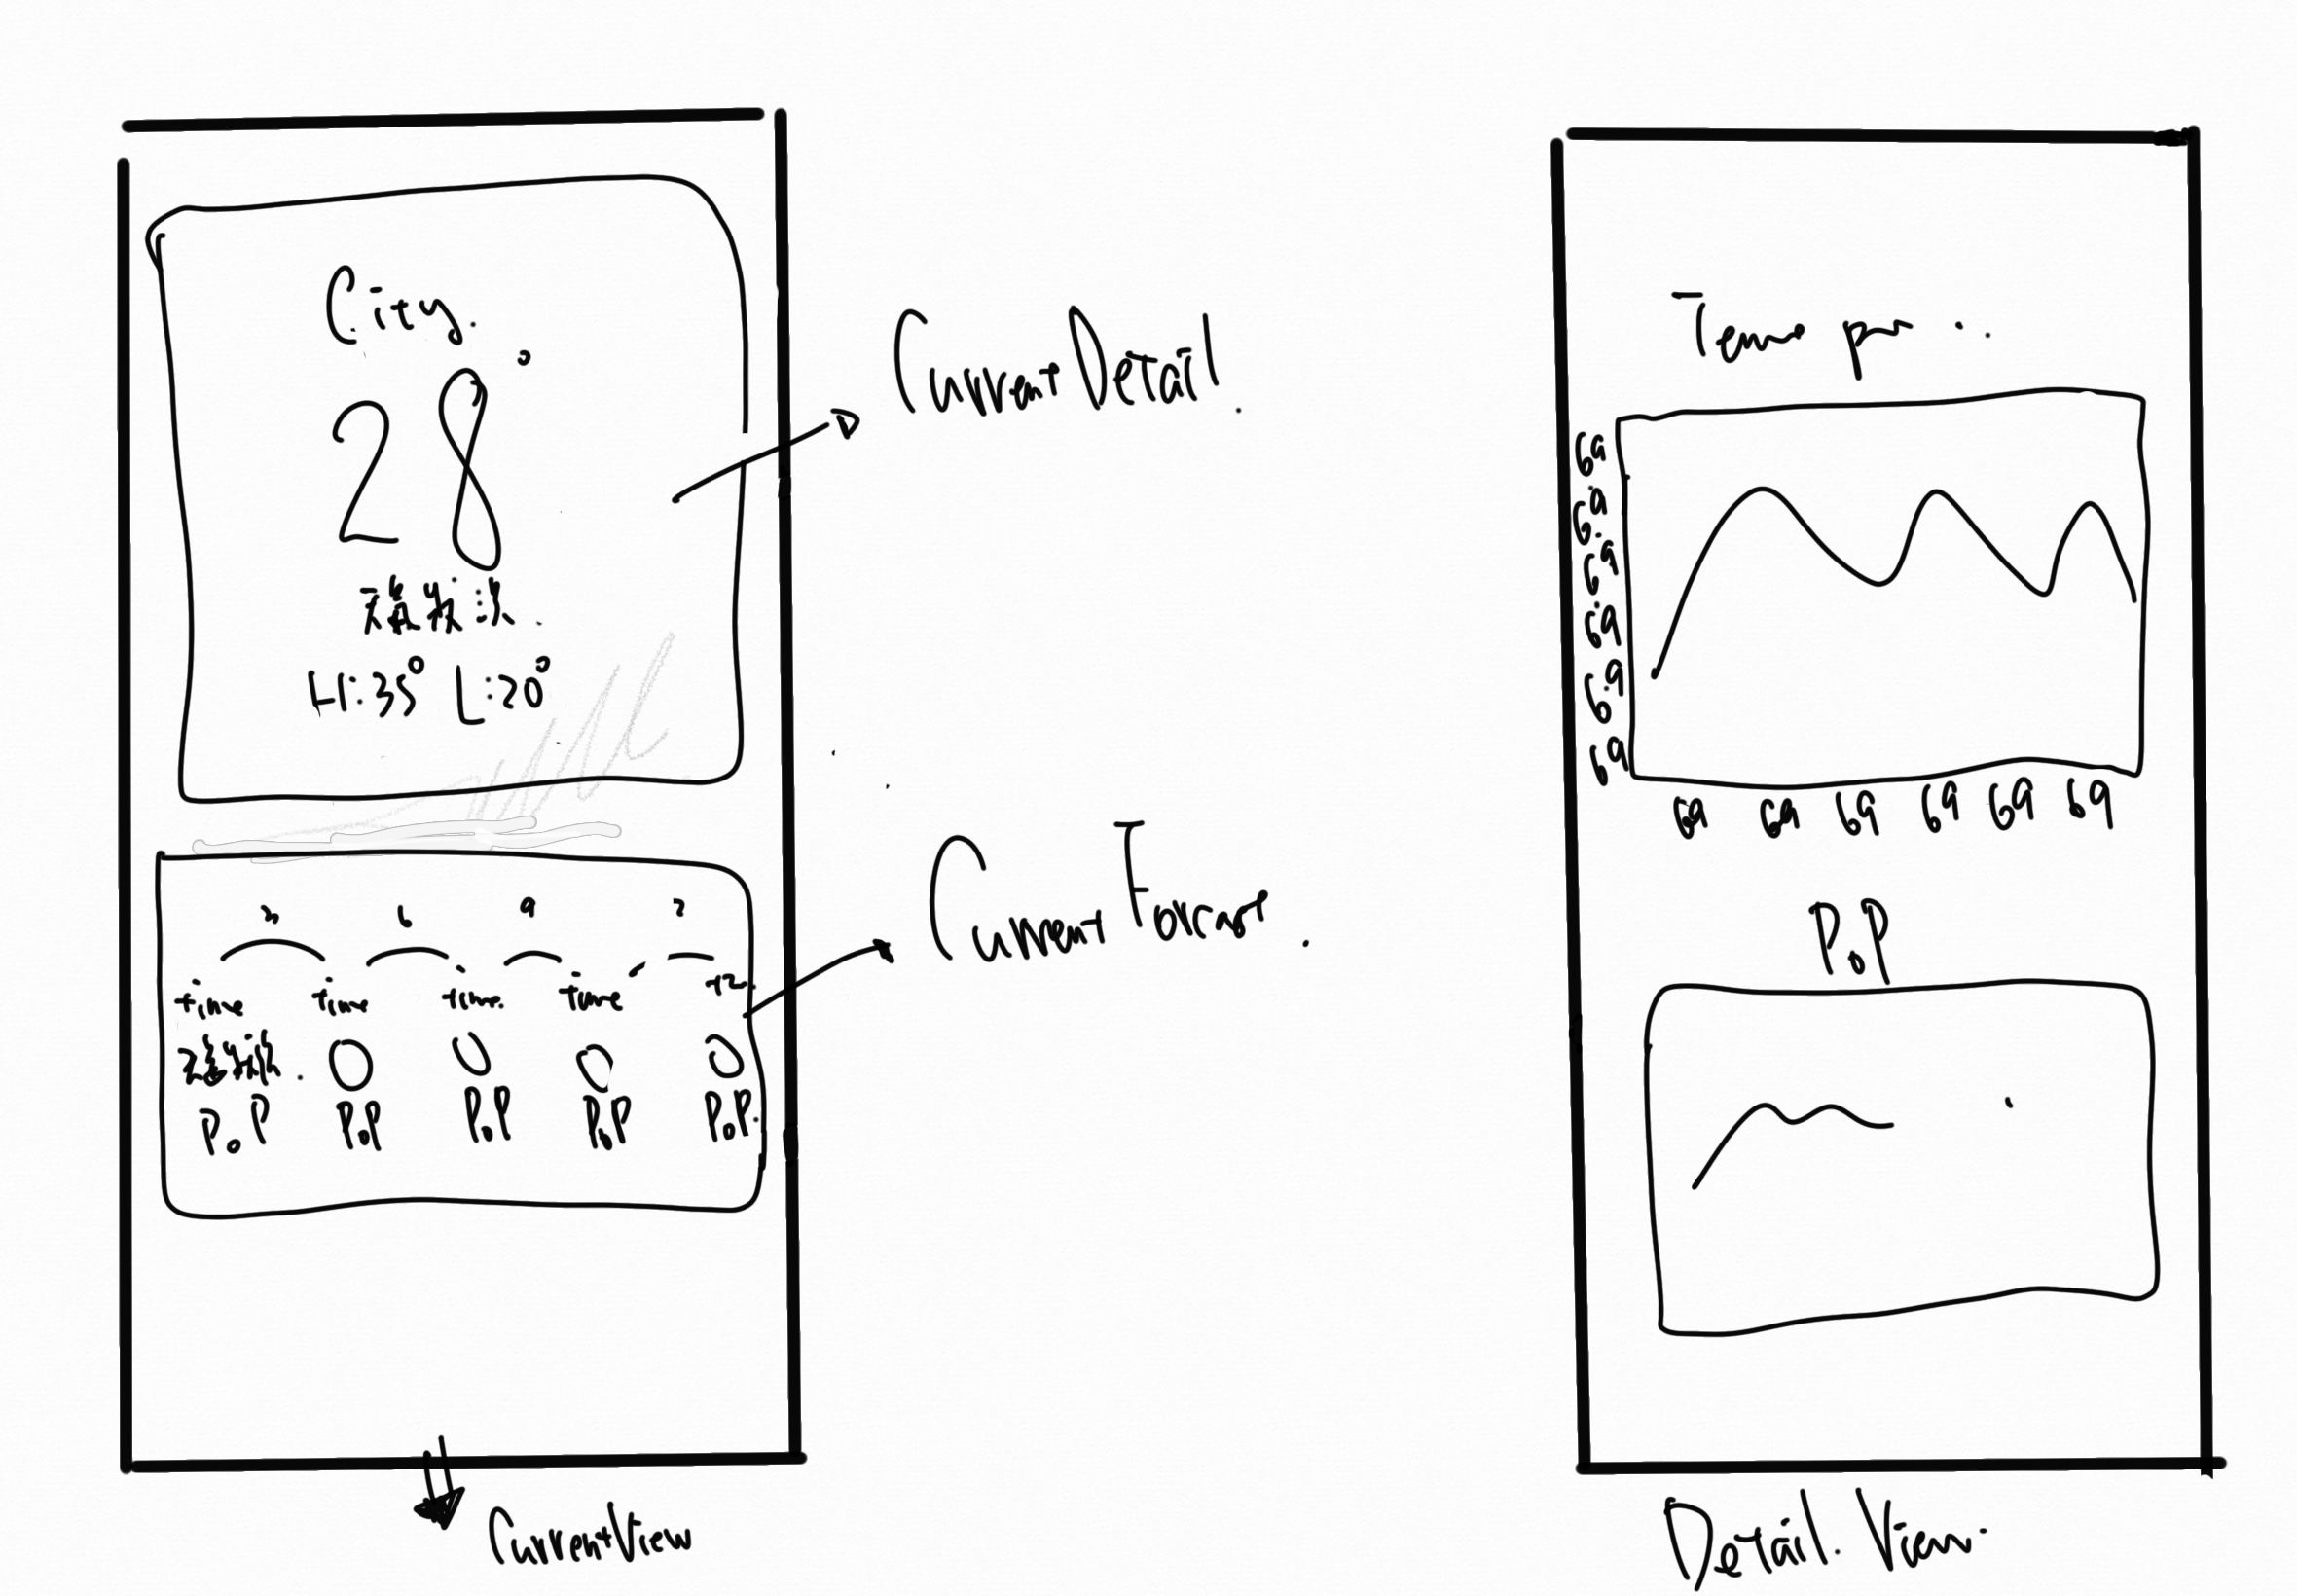 City.
28°
天氣狀況.
H:35° L:20°
CurrentDetail.
3 6 9
time time time. time
天氣狀況. O O O O
PoP PoP PoP PoP PoP.
CurrentForcast.
CurrentView
69
69
69
69
69
69
69 69 69 69 69 69
PoP
Detail. View.